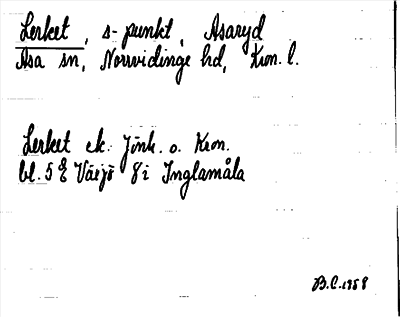 Lerket, s-punkt, Asaryd
Asa sn, Norrvidinge hd, Kron. l.
Lerket ek. Jönk. o. Kron.
bl. 5 Ö Växjö 8i Inglamåla
B.C. 1958